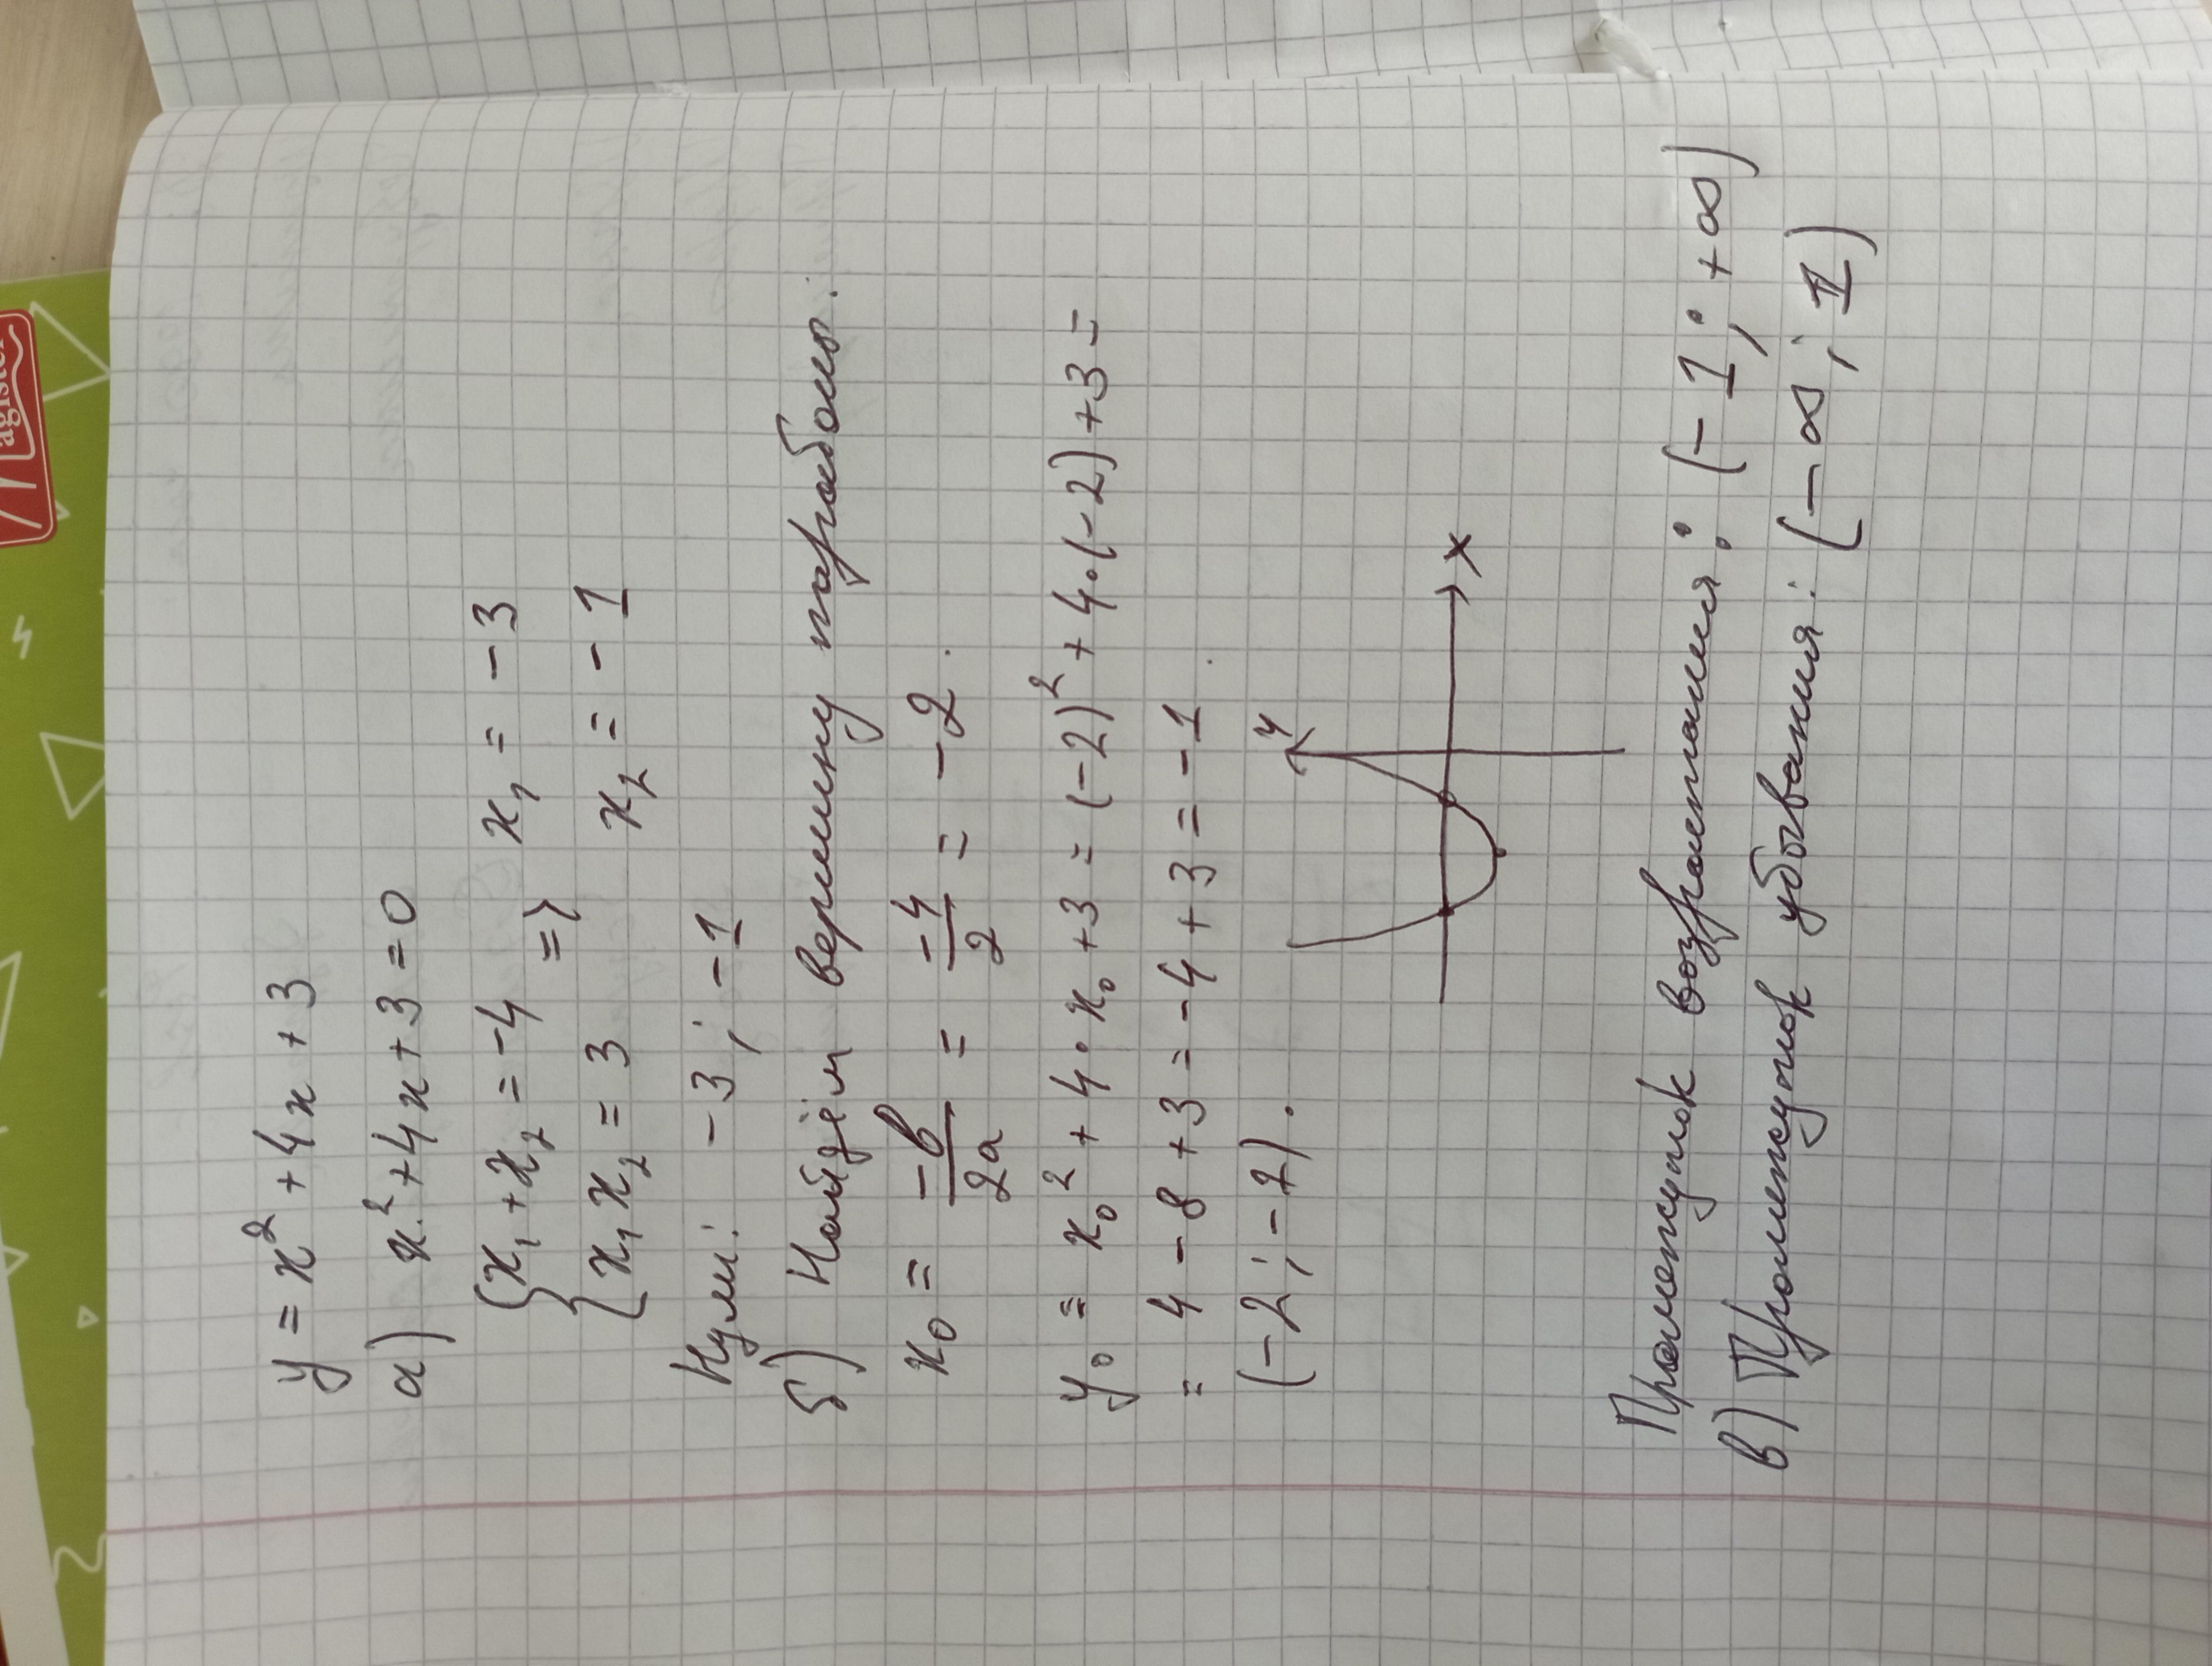 y = x² + 4x + 3
а) x² + 4x + 3 = 0
{ x₁ + x₂ = -4 => x₁ = -3
{ x₁ x₂ = 3 x₂ = -1
Нули: -3; -1
б) Найдём вершину параболы:
x₀ = -b/2a = -4/2 = -2.
y₀ = x₀² + 4·x₀ + 3 = (-2)² + 4·(-2) + 3 =
= 4 - 8 + 3 = -4 + 3 = -1
(-2; -2).
y
x
Промежуток возрастания: (-1; +∞)
в) Промежуток убывания: (-∞; 1)
agister